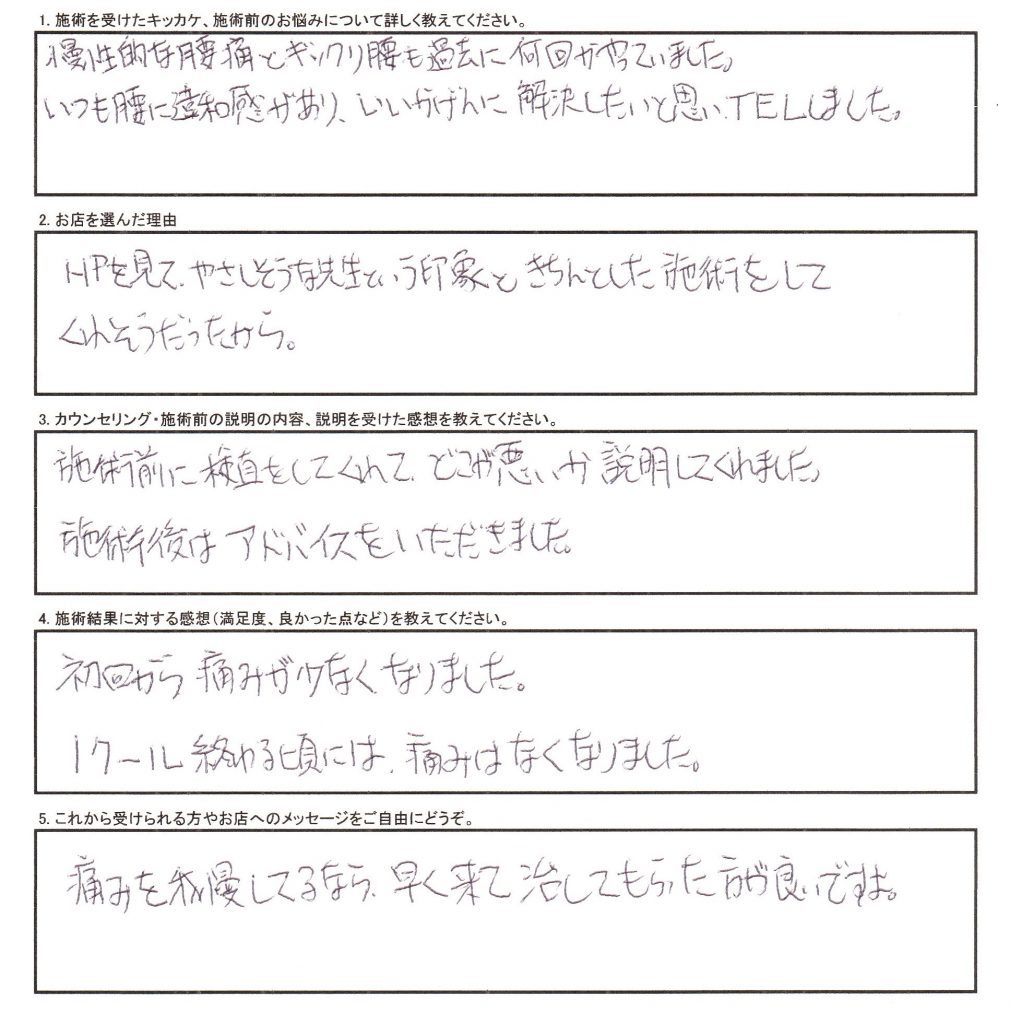 1. 施術を受けたキッカケ、施術前のお悩みについて詳しく教えてください。
慢性的な腰痛とギックリ腰も過去に何回かやっていました。
いつも腰に違和感があり、いいかげんに解決したいと思い、TELしました。
2. お店を選んだ理由
HPを見て、やさしそうな先生という印象と きちんとした施術をして
くれそうだったから。
3. カウンセリング・施術前の説明の内容、説明を受けた感想を教えてください。
施術前に検査をしてくれて、どこが悪いか説明してくれました。
施術後はアドバイスをいただきました。
4. 施術結果に対する感想(満足度、良かった点など)を教えてください。
初回から痛みが少なくなりました。
1クール終わる頃には、痛みはなくなりました。
5. これから受けられる方やお店へのメッセージをご自由にどうぞ。
痛みを我慢してるなら、早く来て治してもらった方が良いですよ。